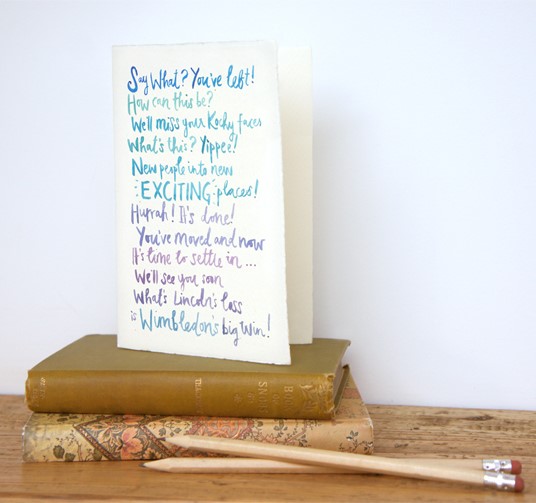 Say What? You've left!
How can this be?
We'll miss your Kooky faces
What's this? Yippee!
New people into new
EXCITING places!
Hurrah! It's done!
You've moved and now
It's time to settle in...
We'll see you soon
What's Lincoln's loss
is Wimbledon's big win!